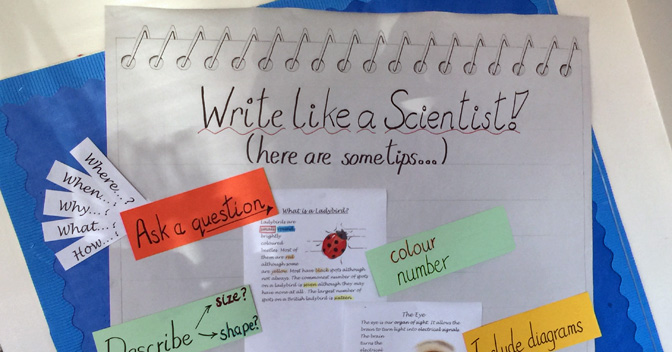 Write like a Scientist!
(here are some tips...)
Where...?
When...?
Why...?
What...?
How...?
Ask a question
What is a Ladybird?
Ladybirds are
small, round,
brightly
coloured
beetles. Most of
these are red
although some
are yellow. Most have black spots although
not always. The commonest number of spots
on a ladybird is seven although they may
have none at all. The largest number of
spots on a British ladybird is sixteen.
colour
number
Describe
size?
shape?
The Eye
The eye is our organ of sight. It allows the
brain to turn light into electrical signals.
The brain
turns the
electrical
Include diagrams